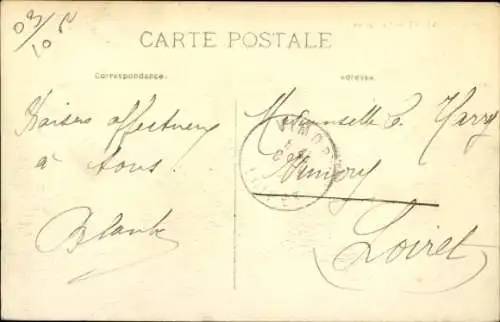 CARTE POSTALE
Correspondance.
Adresse.
Baisers affectueux
à tous!
Blanche
Mademoiselle C. Harry
Vimory
Loiret
VIMORY